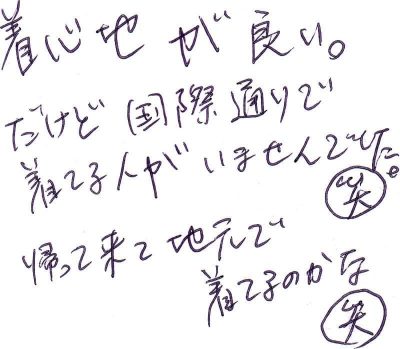 着心地が良い。
だけど国際通りで
着てる人がいませんでした。
㊋笑
帰って来て地元で
着てるのかな
笑